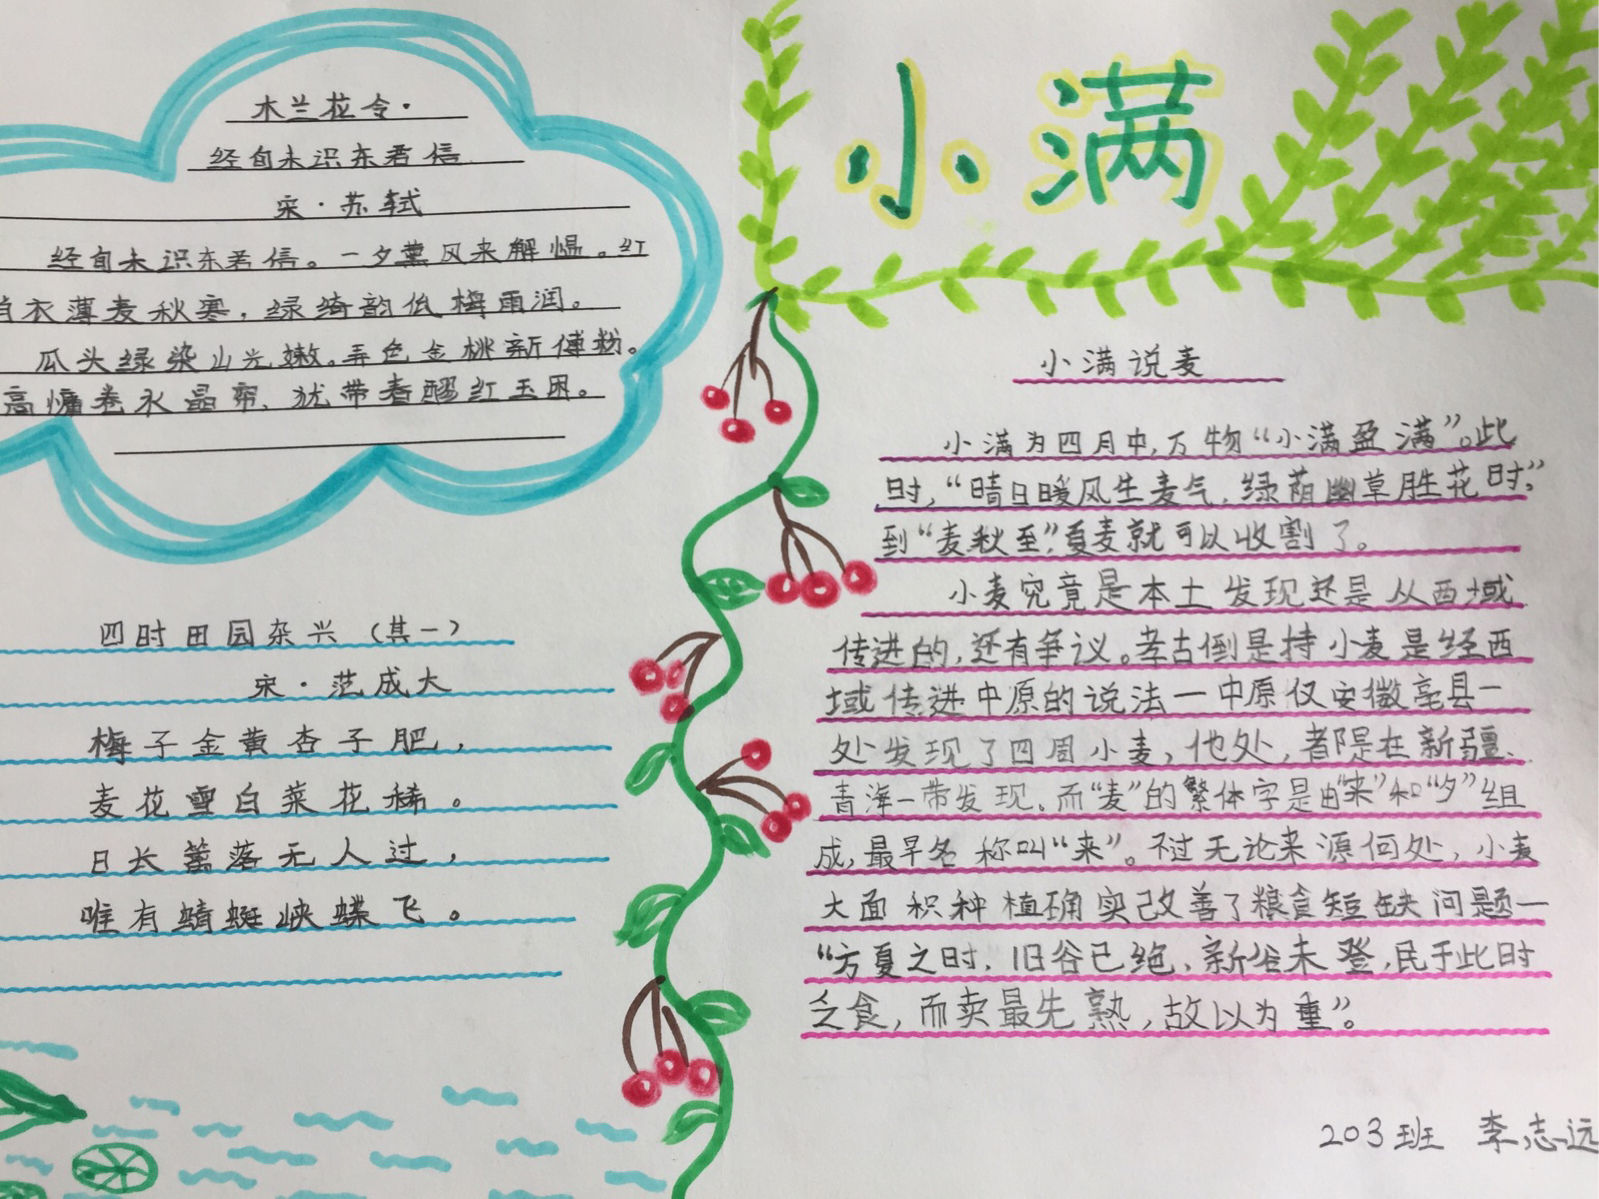 木兰花令·
经旬未识东君信
宋·苏轼
经旬未识东君信。一夕薰风来解愠。红
绡衣薄麦秋寒，绿绮韵低梅雨润。
瓜头绿染山光嫩。弄色金桃新傅粉。
高慵卷水晶帘、犹带春醪红玉困。
四时田园杂兴（其一）
宋·范成大
梅子金黄杏子肥，
麦花雪白菜花稀。
日长篱落无人过，
唯有蜻蜓蛱蝶飞。
小满
小满说麦
小满为四月中，万物“小满盈满”。此
时，“晴日暖风生麦气，绿荫幽草胜花时，”
到“麦秋至”，夏麦就可以收割了。
小麦究竟是本土发现还是从西域
传进的，还有争议。考古倒是持小麦是经西
域传进中原的说法一中原仅安徽亳县一
处发现了四周小麦，他处，都是在新疆、
青海一带发现。而“麦”的繁体字是由“来”和“夕”组
成，最早名称叫“来”。不过无论来源何处，小麦
大面积种植确实改善了粮食短缺问题一
“方夏之时，旧谷已绝，新谷未登，民于此时
乏食，而卖最先熟，故以为重”。
203班 李志远